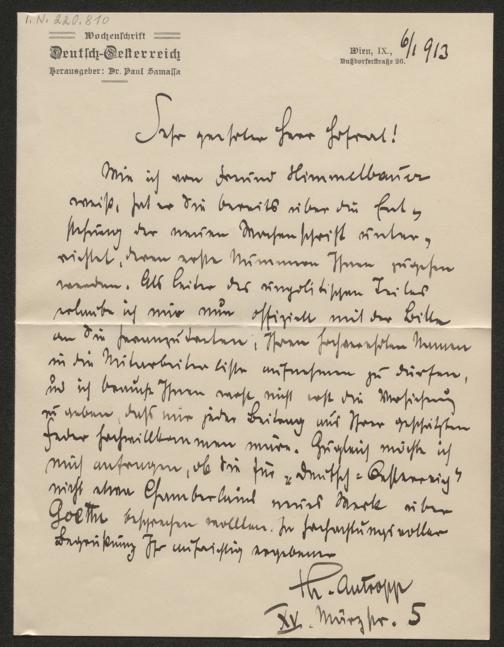 I.N. 220.810
Wochenschrift
Deutsch-Oesterreich
Herausgeber: Dr. Paul Samassa
Wien, IX., 6/1 913
Nußdorferstraße 26.
Sehr geehrter Herr Hofrat!
Wie ich von Freund Himmelbauer
weiß, hat er Sie bereits über die Ent-
stehung der neuen Wochenschrift unter-
richtet, deren erste Nummern Ihnen zugehen
werden. Als Leiter des unpolitischen Teiles
erlaube ich mir nun offiziell mit der Bitte
an Sie heranzutreten, Ihren hochverehrten Namen
in die Mitarbeiterliste aufnehmen zu dürfen,
und ich brauche Ihnen wohl nicht erst die Versicherung
zu geben, daß mir jeder Beitrag aus Ihrer geschätzten
Feder hochwillkommen wäre. Zugleich möchte ich
mich anfragen, ob Sie für „Deutsch-Oesterreich"
nicht etwa Chamberlains neues Werk über
Goethe besprechen wollten. In hochachtungsvoller
Begrüßung Ihr aufrichtig ergebener
Th. Antropp
XV. Märzstr. 5